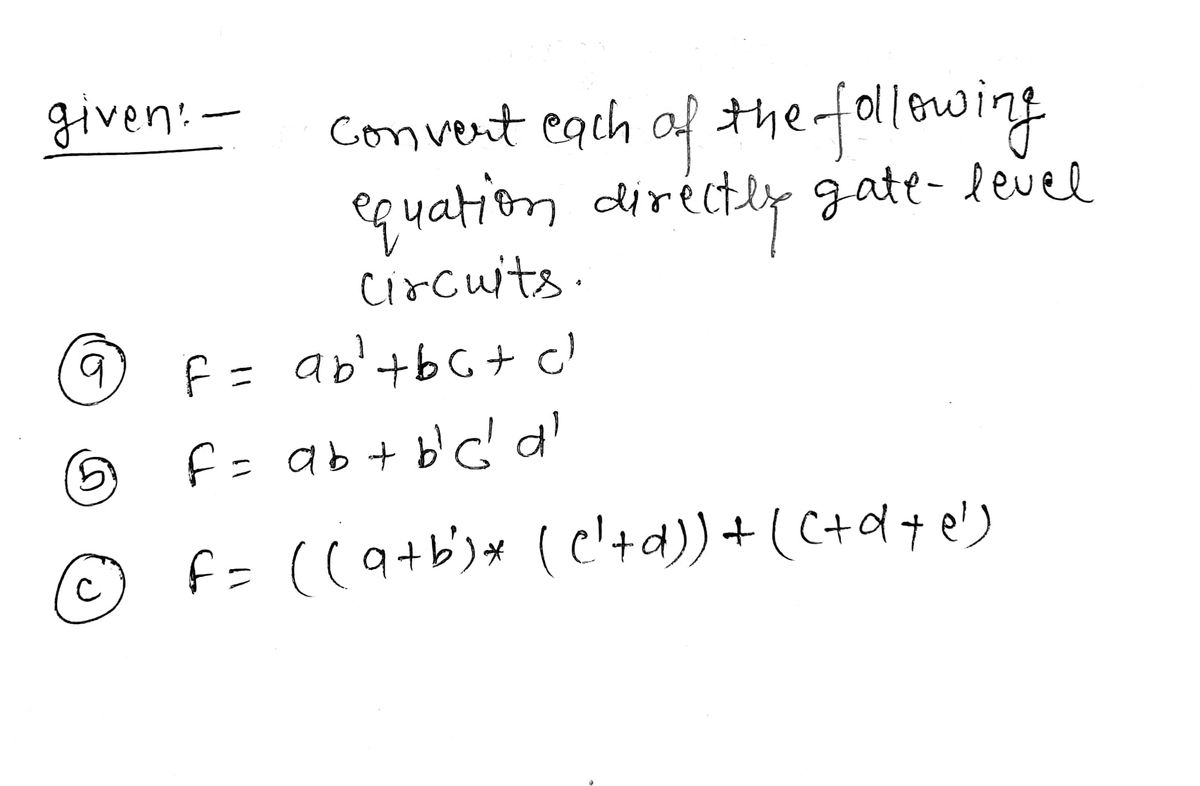 given:- convert each of the following
equation directly gate-level
circuits.
(a) F = ab' + bc + c'
(b) F = ab + b'c'd'
(c) F = ((a+b')* (c'+d)) + (c+d+e')